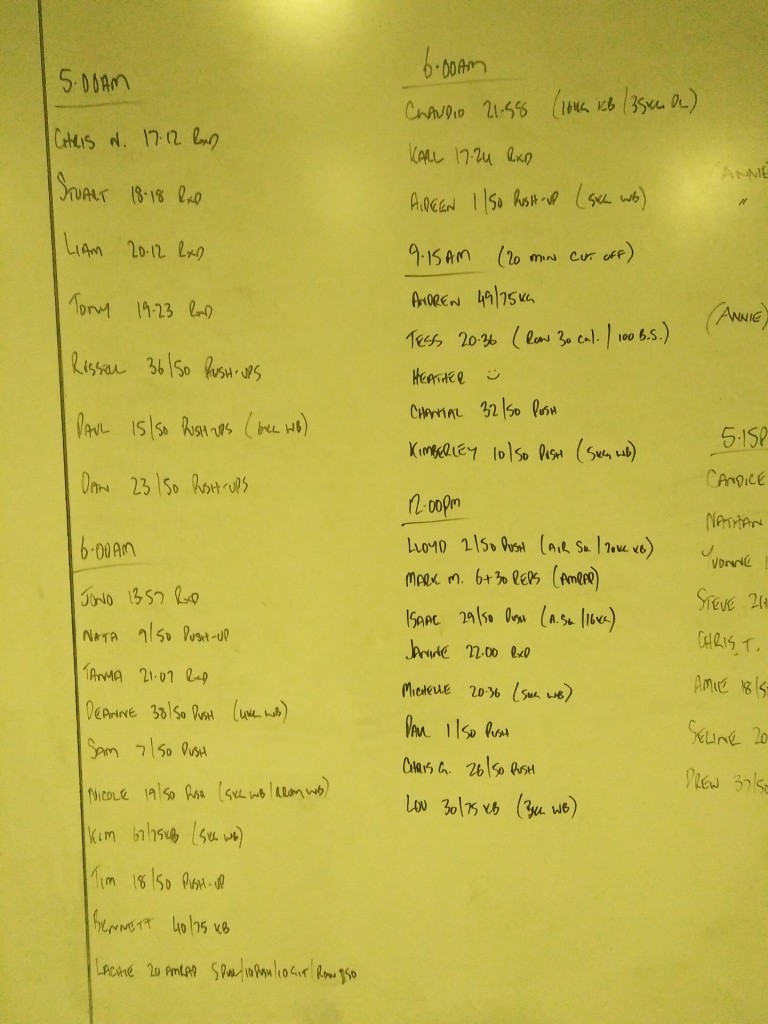 5.00AM
CHRIS N. 17.12 RXD
STUART 18.18 RXD
LIAM 20.12 RXD
TONY 19.23 RXD
RUSSELL 36/50 PUSH-UPS
PAUL 15/50 PUSH-UPS (6KG WB)
DAN 23/50 PUSH-UPS
6.00AM
JONO 13.57 RXD
NATA 9/50 PUSH-UP
TANYA 21.07 RXD
DEANNE 38/50 PUSH (4KG WB)
SAM 7/50 PUSH
NICOLE 19/50 PUSH (5KG WB/
KIM 67/75KB (5KG WB)
TIM 18/50 PUSH-UP
BENNETT 40/75 KB
LACHIE 20 AMRAP 5 PULL/10 PUSH/10 SIT/ROW
6.00AM
CLAUDIO 21.58 (16KG KB/35KG DL)
KARL 17.24 RXD
AIDEEN 1/50 PUSH-UP (5KG WB)
9.15AM (20 MIN CUT OFF)
ANDREW 49/75KG
TESS 20.36 (ROW 30 CAL./100 B.S.)
HEATHER
CHANTAL 32/50 PUSH
KIMBERLEY 10/50 PUSH (5KG WB)
12.00PM
LLOYD 2/50 PUSH (AIR SQ/20KG KB)
MARK M. 6+30 REPS (AMRAP)
ISAAC 29/50 PUSH (A.SQ/16KG)
JANINE 22.00 RXD
MICHELLE 20.36 (5KG WB)
PAUL 1/50 PUSH
CHRIS G. 26/50 PUSH
LOU 30/75 KB (3KG WB)
ANNIE
"
(ANNIE)
5.15P
CANDICE
NATHAN
YVONNE
STEVE 21
CHRIS T.
AMIE 18/5
SELINE 20
DREW 37/50